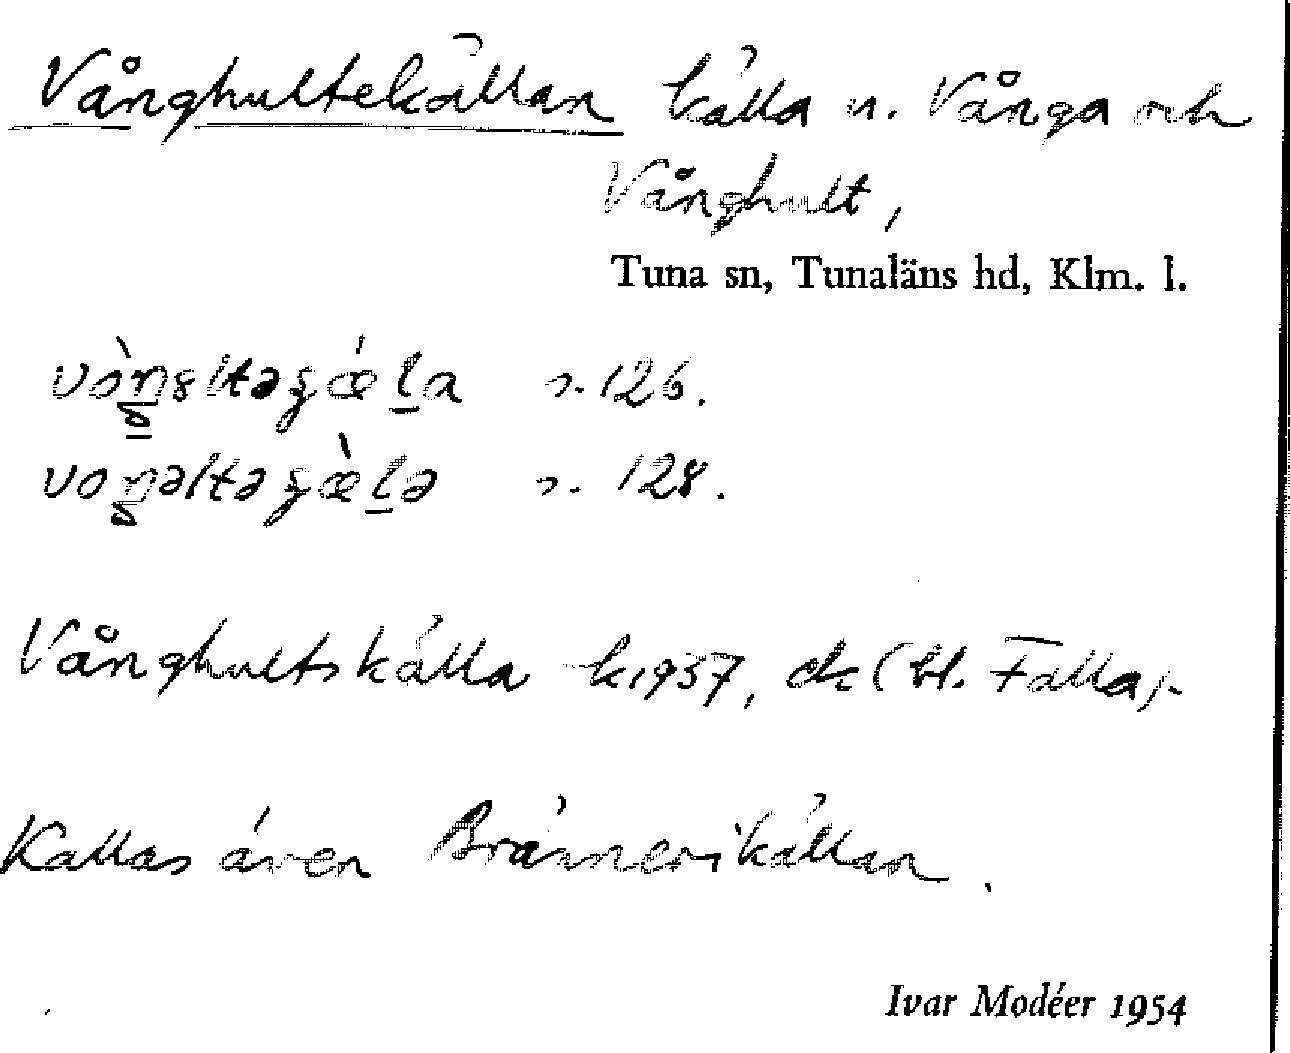 Vånghultekällan källa n. Vånga och
Vånghult,
Tuna sn, Tunaläns hd, Klm. l.
s. 126.
s. 128.
Vånghultskälla k 1957, ek (bl. Falla).
Kallas även Brännerikällan.
Ivar Modéer 1954